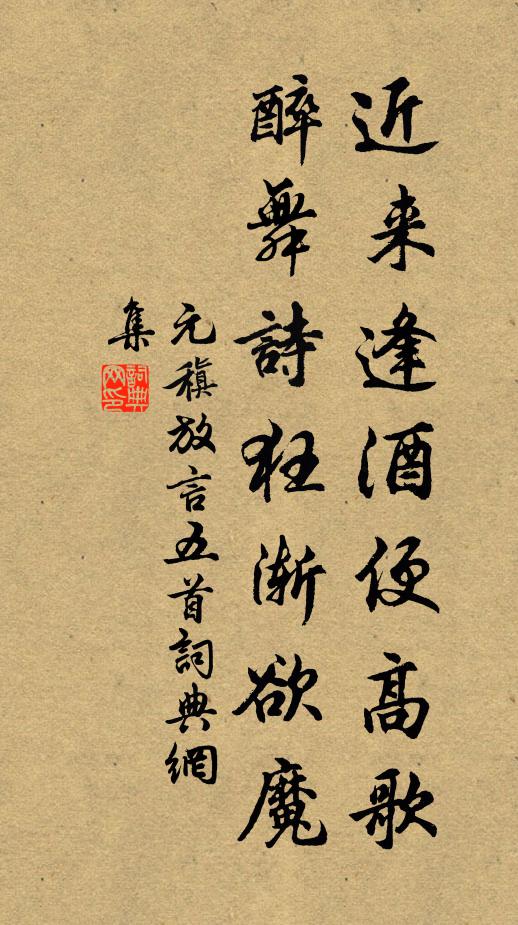 近来逢酒便高歌
醉舞詩狂漸欲魔
元稹放言五首詞典網
集
詞典
网印